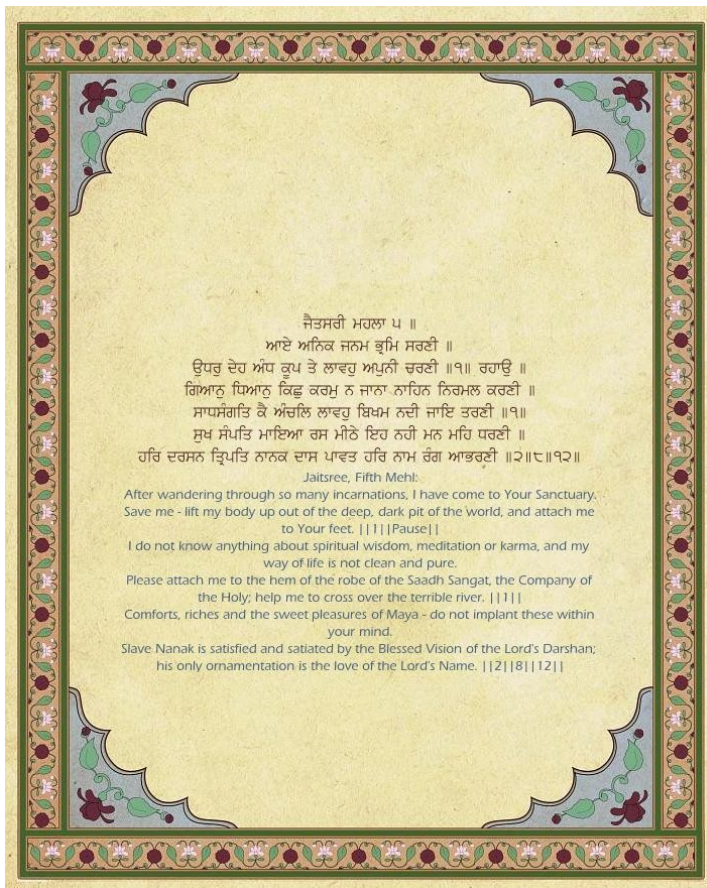 ਜੈਤਸਰੀ ਮਹਲਾ ੫ ॥
ਆਏ ਅਨਿਕ ਜਨਮ ਭ੍ਰਮਿ ਸਰਣੀ ॥
ਉਧਰੁ ਦੇਹ ਅੰਧ ਕੂਪ ਤੇ ਲਾਵਹੁ ਅਪੁਨੀ ਚਰਣੀ ॥੧॥ ਰਹਾਉ ॥
ਗਿਆਨੁ ਧਿਆਨੁ ਕਿਛੁ ਕਰਮੁ ਨ ਜਾਨਾ ਨਾਹਿਨ ਨਿਰਮਲ ਕਰਣੀ ॥
ਸਾਧਸੰਗਤਿ ਕੈ ਅੰਚਲਿ ਲਾਵਹੁ ਬਿਖਮ ਨਦੀ ਜਾਇ ਤਰਣੀ ॥੧॥
ਸੁਖ ਸੰਪਤਿ ਮਾਇਆ ਰਸ ਮੀਠੇ ਇਹ ਨਹੀ ਮਨ ਮਹਿ ਧਰਣੀ ॥
ਹਰਿ ਦਰਸਨ ਤ੍ਰਿਪਤਿ ਨਾਨਕ ਦਾਸ ਪਾਵਤ ਹਰਿ ਨਾਮ ਰੰਗ ਆਭਰਣੀ ॥੨॥੮॥੧੨॥
Jaitsree, Fifth Mehl:
After wandering through so many incarnations, I have come to Your Sanctuary.
Save me - lift my body up out of the deep, dark pit of the world, and attach me
to Your feet. ||1||Pause||
I do not know anything about spiritual wisdom, meditation or karma, and my
way of life is not clean and pure.
Please attach me to the hem of the robe of the Saadh Sangat, the Company of
the Holy; help me to cross over the terrible river. ||1||
Comforts, riches and the sweet pleasures of Maya - do not implant these within
your mind.
Slave Nanak is satisfied and satiated by the Blessed Vision of the Lord's Darshan;
his only ornamentation is the love of the Lord's Name. ||2||8||12||